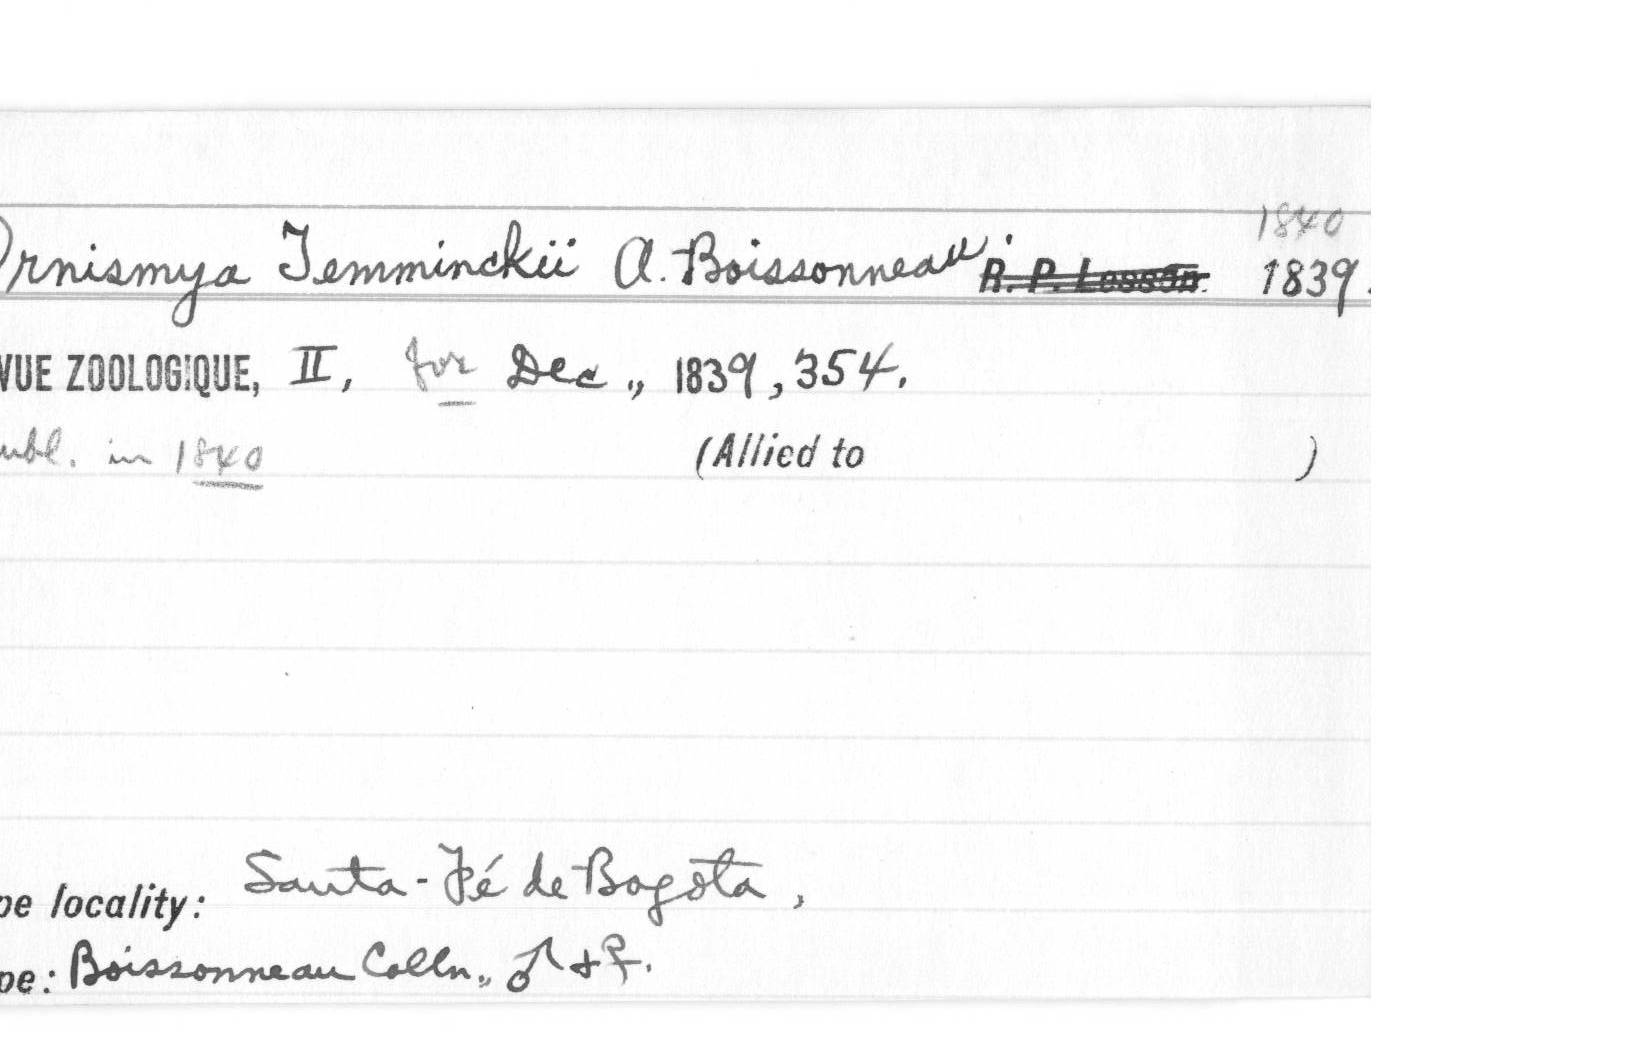 1840
Ornismya Temminckii A. Boissonneau. R. P. Lesson. 1839.
VUE ZOOLOGIQUE, II, for Dec., 1839, 354.
ubl. in 1840 (Allied to )
pe locality: Santa-Fé de Bogota,
pe: Boissonneau Colln., ♂ + ♀.